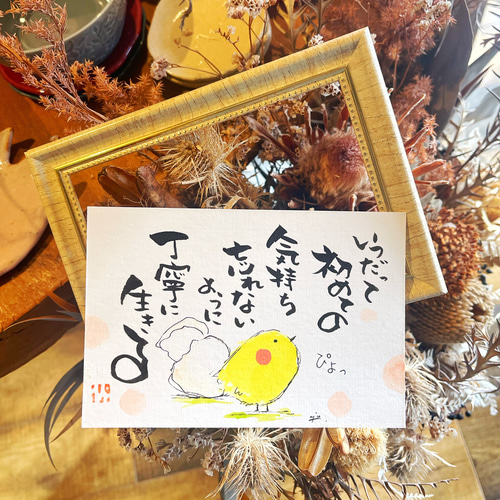 いつだって
初めての
気持ち
忘れない
ように
丁寧に
生きる
ぴよっ